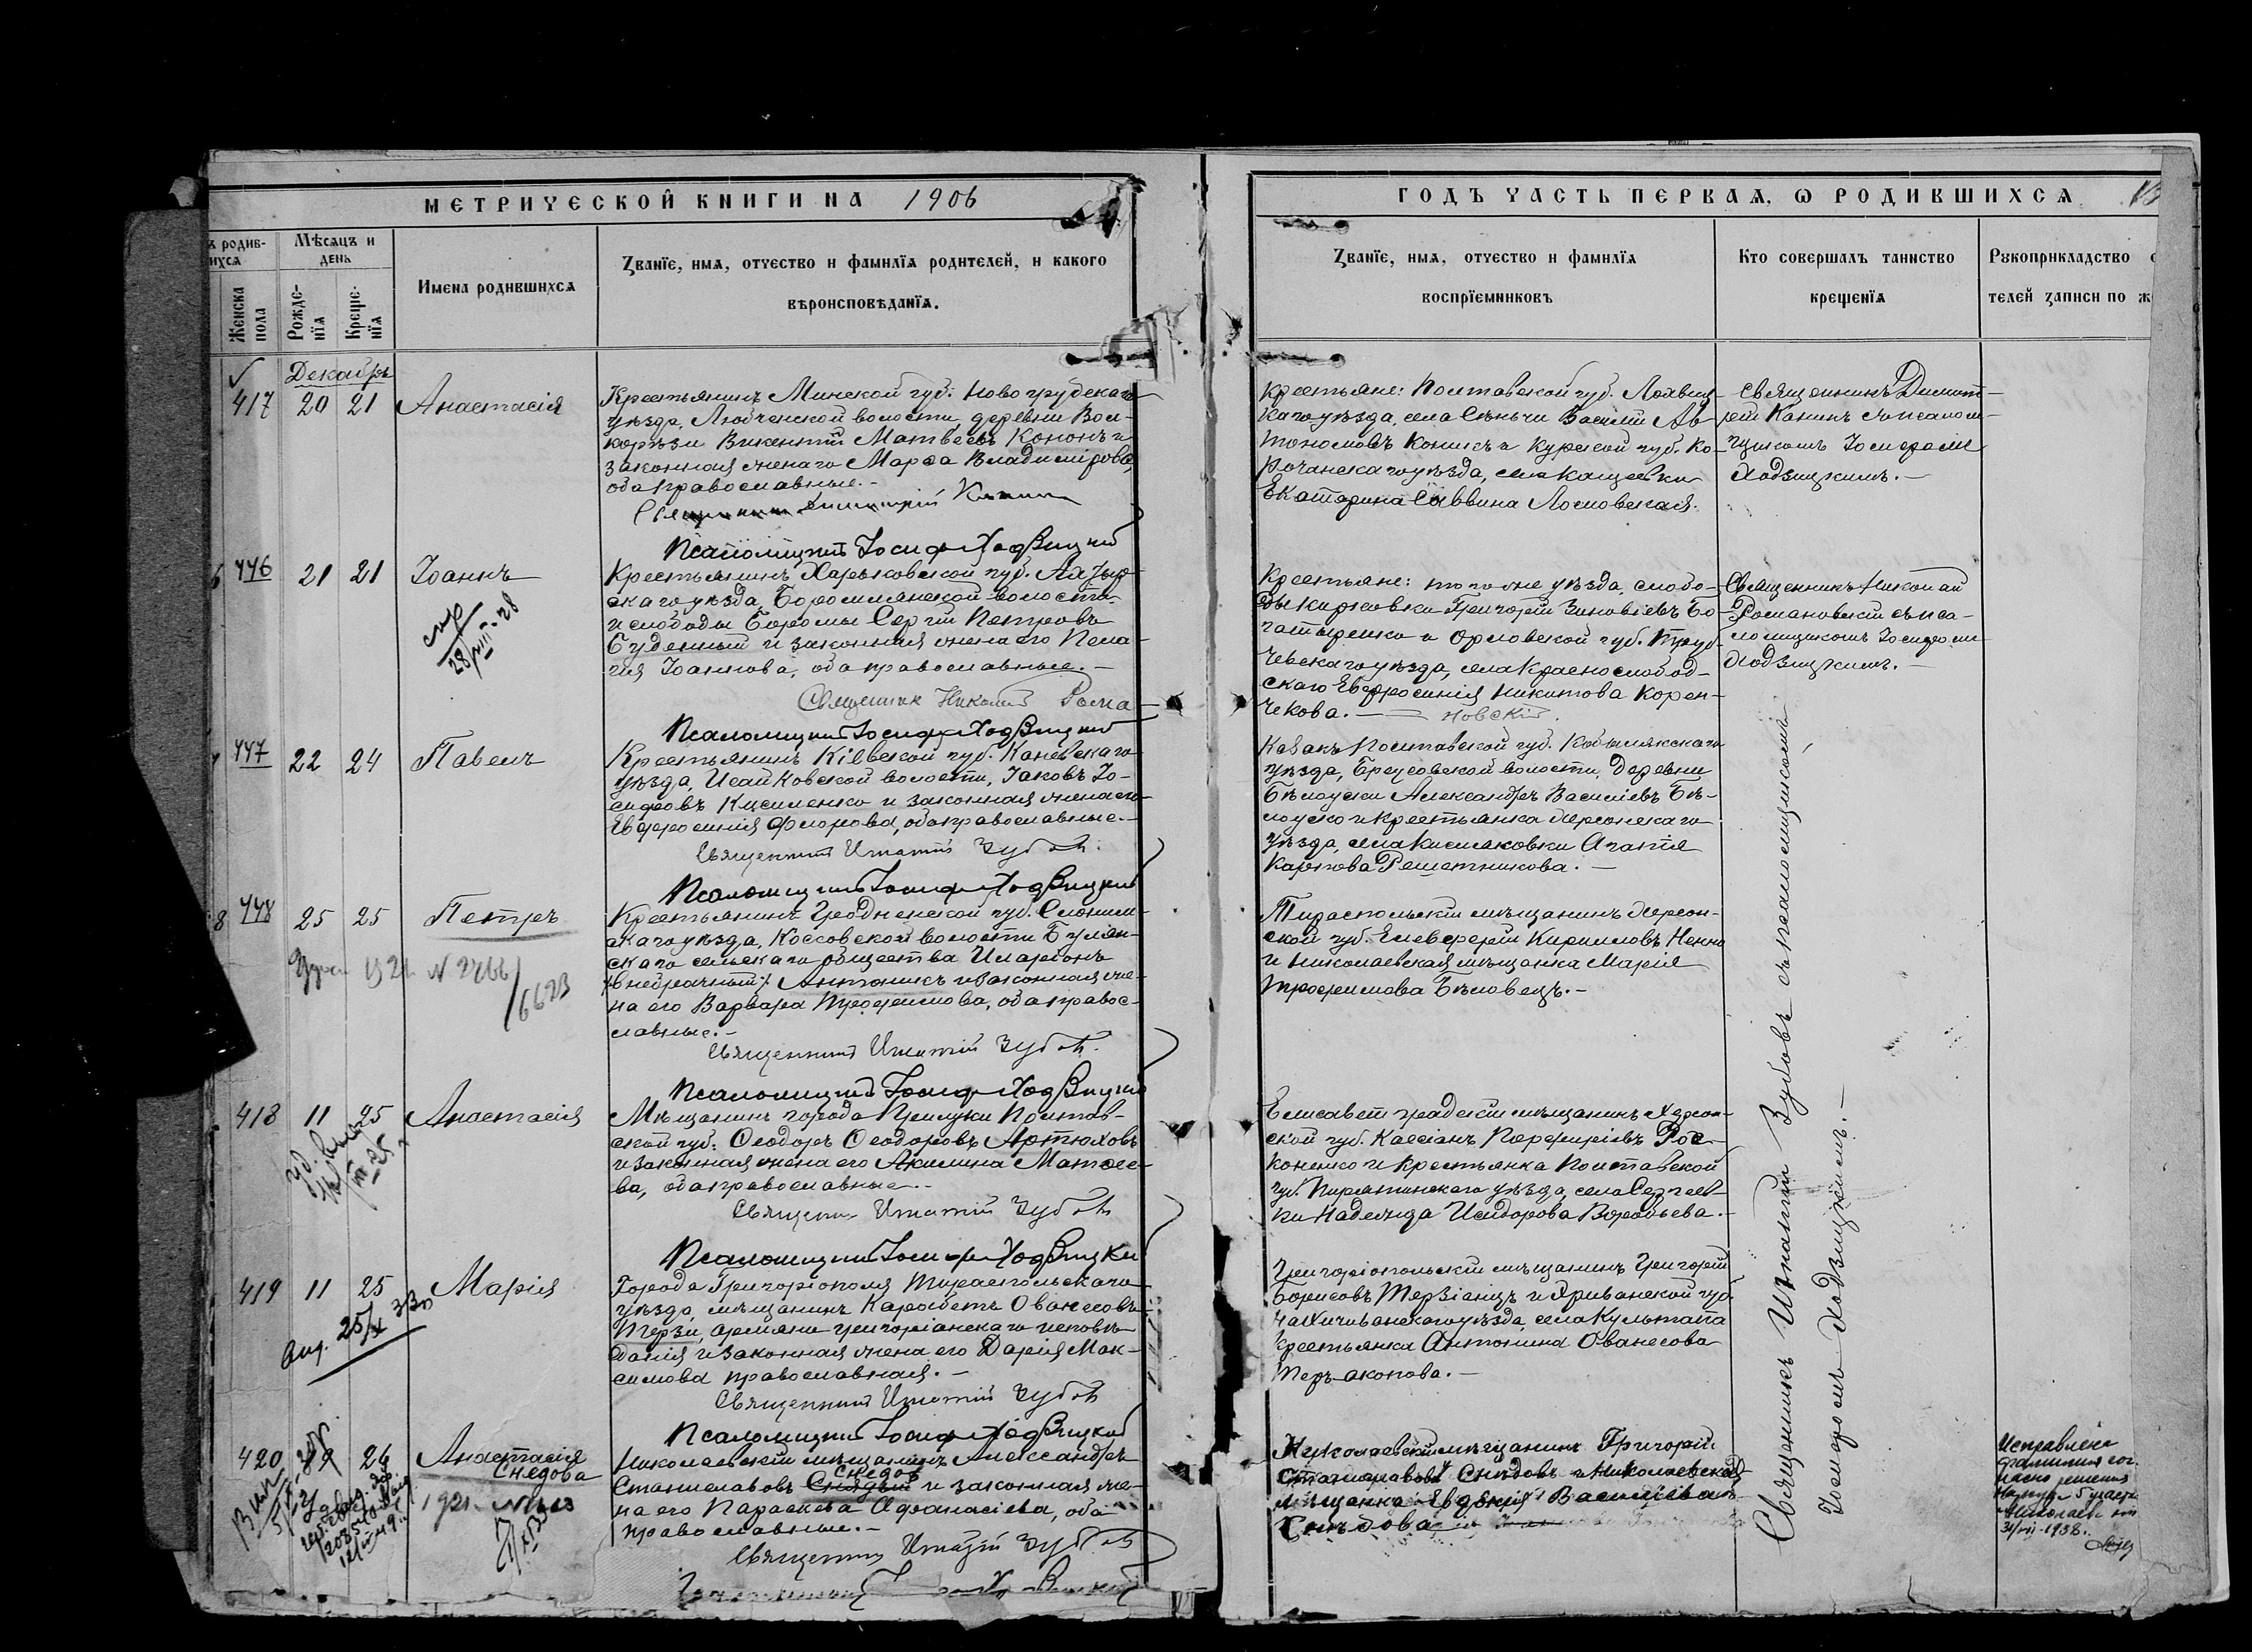 МЕТРИЧЕСКОЙ КНИГИ НА 1906
ГОДЪ ЧАСТЬ ПЕРВАЯ, Ѡ РОДИВШИХСЯ
ъ родив-
ихся
Мѣсяцъ и
день
Женска
пола
Рожде-
нїя
Креще-
нїя
Имена родившихся
Званїе, имя, отчество и фамилїя родителей, и какого
вѣроисповѣданїя.
Званїе, имя, отчество и фамилїя
воспрїемниковъ
Кто совершалъ таинство
крещенїя
Рукоприкладство
телей записи по
Декабрь
417 20 21 Анастасія
Крестьянинъ Минской губ. Новогрудскаго
уѣзда, Любченской волости, деревни Вол-
Викентій Матвѣевъ Кононъ и
законная жена его Марѳа Владимірова,
оба православные.-
Псаломщикъ Іосифъ Ходзицкій
Крестьяне: Полтавской губ. Лохвиц-
каго уѣзда, села Сѣнчи Василій Ав-
тономовъ и Курской губ. Ко-
рочанскаго уѣзда, села
Екатерина Саввина Лосновская.
Священникъ Димит-
рій Канинъ съ псалом-
щикомъ Іосифомъ
Ходзицкимъ.-
446 21 21 Іоаннъ
28/VIII-28
Крестьянинъ Харьковской губ. Ахтыр-
скаго уѣзда, Боромлянской волости
и слободы Боромли Сергій Петровъ
Буденный и законная жена его Пела-
гія Іоаннова, оба православные.-
Священник Николай Рома-
новскій.
Псаломщикъ Іосифъ Ходзицкій
Крестьяне: того же уѣзда, слобо-
ды Григорій Зиновіевъ Бо-
гатыренко и Орловской губ. Труб-
чевскаго уѣзда, села Краснослобод-
скаго Евфросинія Никитова Корен-
чекова.-
Священникъ Николай
Романовскій съ пса-
ломщикомъ Іосифомъ
Ходзицкимъ.-
447 22 24 Павелъ
Крестьянинъ Кіевской губ. Каневскаго
уѣзда, Исайковской волости, Іаковъ Іо-
сифовъ Киселенко и законная жена его
Евфросинія Флорова, оба православные.-
Священникъ Игнатій Зубовъ.
Псаломщикъ Іосифъ Ходзицкій
Казакъ Полтавской губ. Кобелякскаго
уѣзда, Бреусовской волости, деревни
Бѣлоуски Александръ Василіевъ Бѣ-
лоуско и крестьянка Херсонскаго
уѣзда, села Кисляковки Агапія
Карпова Решетникова.-
448 25 25 Петръ
Крестьянинъ Гродненской губ. Слоним-
скаго уѣзда, Коссовской волости
скаго сельскаго общества Иларіонъ
(внебрачный) Антоникъ и законная же-
на его Варвара Трофимова, оба правос-
лавные.-
Священникъ Игнатій Зубовъ.
Псаломщикъ Іосифъ Ходзицкій
Тираспольскій мѣщанинъ Херсон-
ской губ. Елевферій Кирилловъ Ненно
и Николаевская мѣщанка Марія
Трофимова Бѣловецъ.-
418 11 25 Анастасія
Мѣщанинъ города Прилуки Полтав-
ской губ. Ѳеодоръ Ѳеодоровъ Артюховъ
и законная жена его Акилина Матѳее-
ва, оба православные.-
Священник Игнатій Зубовъ
Псаломщикъ Іосифъ Ходзицкій
Елисаветградскій мѣщанинъ Херсон-
ской губ. Кассіанъ Порфиріевъ Рос-
коненко и крестьянка Полтавской
губ. Пирятинскаго уѣзда, села Сергѣев-
ки Надежда Исидорова Воробьева.-
419 11 25 Марія
Города Григоріополя Тираспольскаго
уѣзда, мѣщанинъ Карабетъ Ованесовъ
Терзи, армяно-григоріанскаго исповѣ-
данія и законная жена его Дарія Мак-
симова православная.-
Священникъ Игнатій Зубовъ
Псаломщикъ Іосифъ Ходзицкій
Григоріопольскій мѣщанинъ Григорій
Борисовъ Терзіанцъ и Эриванской губ.
Нахичиванскаго уѣзда, села Культапа
крестьянка Антонина Ованесова
Теръ-акопова.-
420 26 Анастасія
Снедова
Николаевскій мѣщанинъ Александръ
Станиславовъ Снедов и законная же-
на его Параскева Аѳанасіева, оба
православные.-
Священник Игнатій Зубовъ
Николаевскій мѣщанинъ Григорій
Снѣдовъ и Николаевская
мѣщанка Евдокія Василіева
Снѣдова
Священникъ Игнатій Зубовъ съ псаломщикомъ
Іосифомъ Ходзицкимъ.-
Исправлена
фамилия сог-
ласно решения
Нарсуда 5 участ.
Николаев
31/VII-1938.